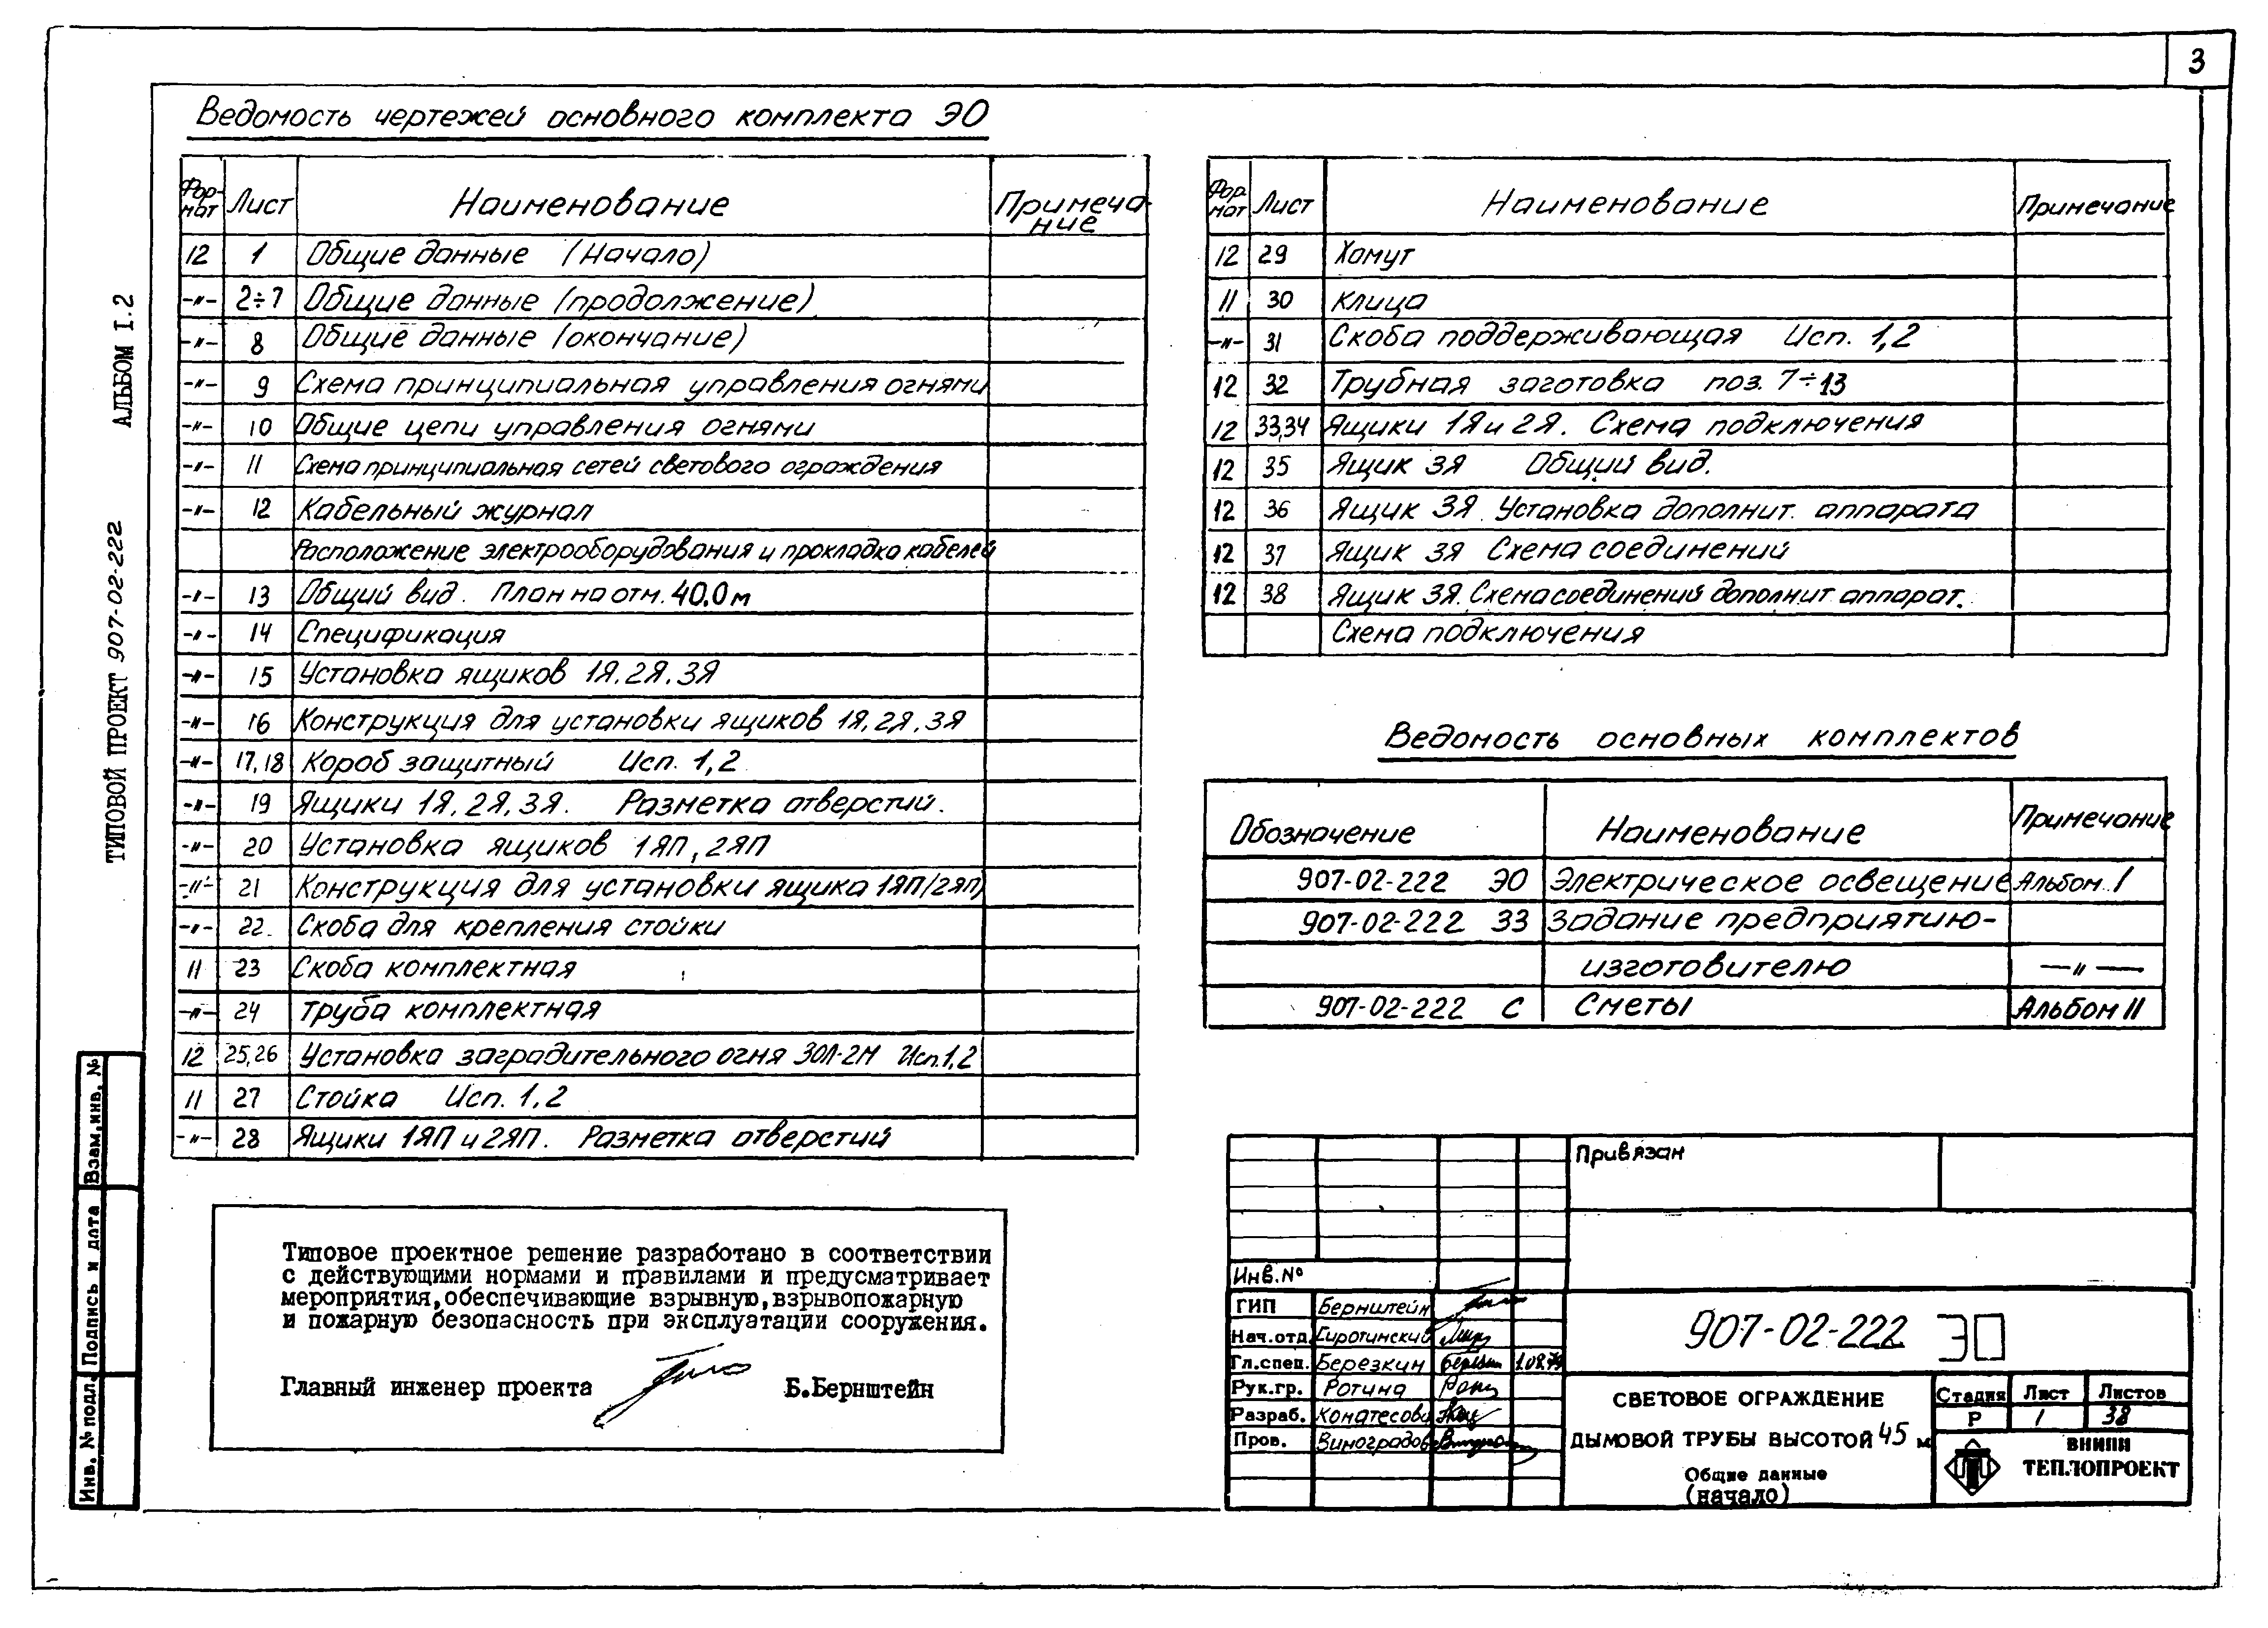 3
Ведомость чертежей основного комплекта ЭО
Фор-мат Лист Наименование Примечание
12 1 Общие данные (Начало)
-"- 2÷7 Общие данные (продолжение)
-"- 8 Общие данные (окончание)
-"- 9 Схема принципиальная управления огнями
-"- 10 Общие цепи управления огнями
-"- 11 Схема принципиальная сетей светового ограждения
-"- 12 Кабельный журнал
Расположение электрооборудования и прокладка кабелей
-"- 13 Общий вид. План на отм. 40.0 м
-"- 14 Спецификация
-"- 15 Установка ящиков 1Я, 2Я, 3Я
-"- 16 Конструкция для установки ящиков 1Я, 2Я, 3Я
-"- 17,18 Короб защитный Исп. 1,2
-"- 19 Ящики 1Я, 2Я, 3Я. Разметка отверстий.
-"- 20 Установка ящиков 1ЯП, 2ЯП
-"- 21 Конструкция для установки ящика 1ЯП/2ЯП)
-"- 22. Скоба для крепления стойки
11 23 Скоба комплектная
-"- 24 Труба комплектная
12 25,26 Установка заградительного огня ЗОЛ-2М Исп.1,2
11 27 Стойка Исп. 1,2
-"- 28 Ящики 1ЯП и 2ЯП. Разметка отверстий
Фор-мат Лист Наименование Примечание
12 29 Хомут
11 30 Клица
-"- 31 Скоба поддерживающая Исп. 1,2
12 32 Трубная заготовка поз. 7÷13
12 33,34 Ящики 1Я и 2Я. Схема подключения
12 35 Ящик 3Я Общий вид.
12 36 Ящик 3Я. Установка дополнит. аппарата
12 37 Ящик 3Я Схема соединений
12 38 Ящик 3Я. Схема соединений дополнит. аппарат.
Схема подключения
Ведомость основных комплектов
Обозначение Наименование Примечание
907-02-222 ЭО Электрическое освещение Альбом I
907-02-222 ЗЗ Задание предприятию-
изготовителю —"—
907-02-222 С Сметы Альбом II
Типовое проектное решение разработано в соответствии
с действующими нормами и правилами и предусматривает
мероприятия,обеспечивающие взрывную,взрывопожарную
и пожарную безопасность при эксплуатации сооружения.
Главный инженер проекта Б.Бернштейн
Привязан
Инв.№
ГИП Бернштейн
Нач.отд. Сиротинский
Гл.спец. Березкин
Рук.гр. Ротина
Разраб.
Пров. Виноградов
907-02-222 ЭО
СВЕТОВОЕ ОГРАЖДЕНИЕ
ДЫМОВОЙ ТРУБЫ ВЫСОТОЙ 45 м
Общие данные
(начало)
Стадия Лист Листов
Р 1 38
ВНИПИ
ТЕПЛОПРОЕКТ
ТИПОВОЙ ПРОЕКТ 907-02-222 АЛЬБОМ I.2
Инв. № подл. Подпись и дата Взам.инв. №